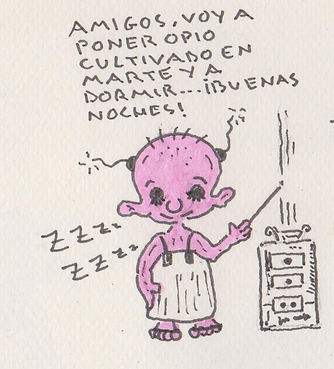 AMIGOS, VOY A
PONER OPIO
CULTIVADO EN
MARTE Y A
DORMIR... ¡BUENAS
NOCHES!
ZZZ...
ZZZ...